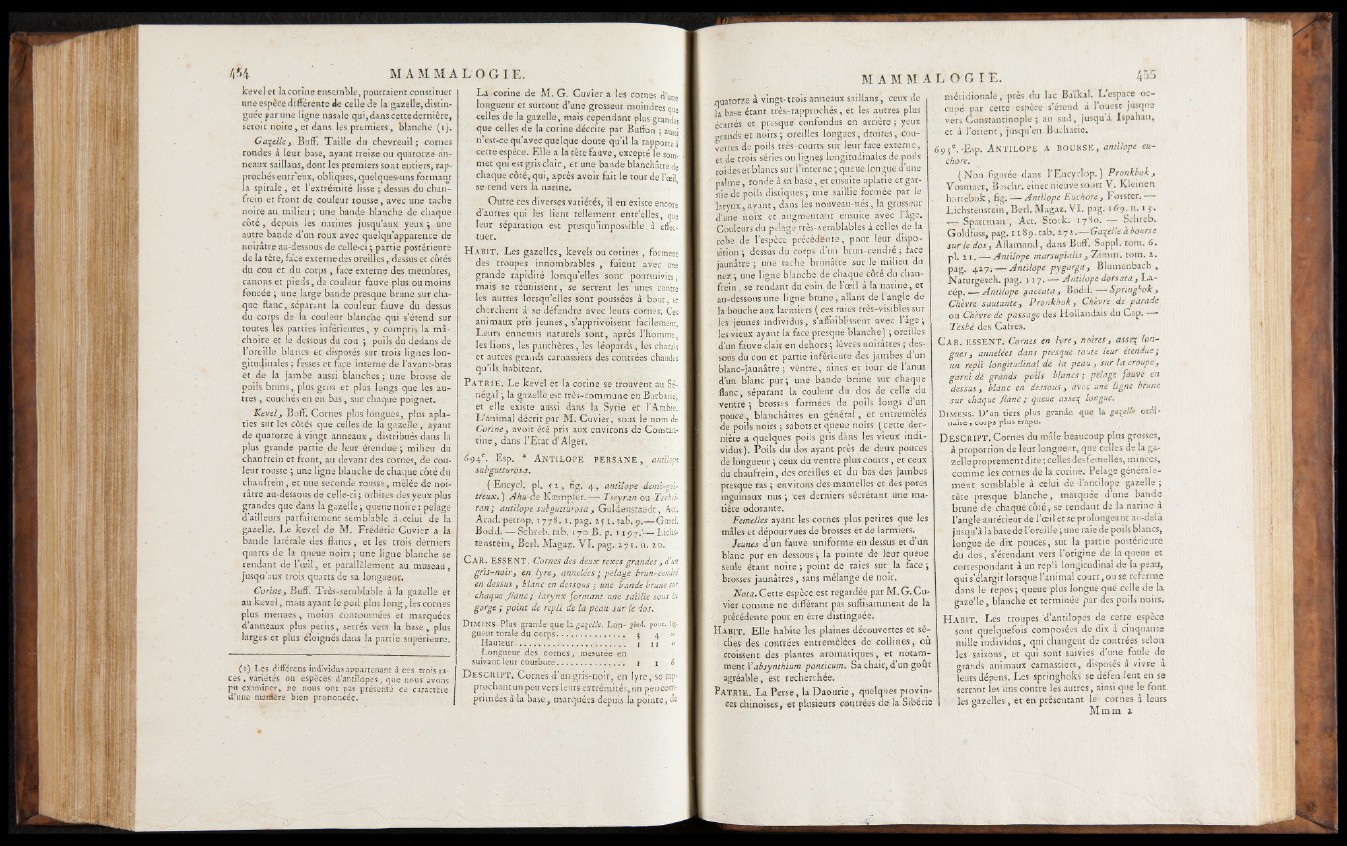 454 MAMMALOGIE.
kevel et la corine ensemble, pourraient constituer
une espèce différente de celle de la gazelle, distin-
guée par une ligne nasale qui, dans cette dernière,
seroit noire, et dans les premiers, blanche (1).
Gazelle, Buff. Taille du chevreuil ; cornes
rondes à leur base, ayant treize ou quatorze an-
neaux saillans, dont les premiers sont entiers, rap-
prochés entr'eux, obliques, quelques-uns formant
la spirale, et l'extrémité lisse ; dessus du chan-
frein et front de couleur rousse, avec une tache
noire au milieu ; une bande blanche de chaque
côté, depuis les narines jusqu'aux yeux ; une
autre bande d'un roux avec quelqu'apparence de
noirâtre au-dessous de celle-ci ; partie postérieure
de la tête, face externe des oreilles, dessus et côtés
du cou et du corps, face externe des membres,
canons et pieds, de couleur fauve plus ou moins
foncée ; une large bande presque brune sur cha-
que flanc, séparant la couleur fauve du dessus
du corps de la couleur blanche qui s'étend sur
toutes les parties inférieures, y compris la mâ-
choire et le dessous du cou ; poils du dedans de
l'oreille blancs et disposés sur trois lignes lon-
gitudinales ; fesses et face interne de l'avant-bras
et de la jambe aussi blanches ; une brosse de
poils bruns, plus gris et plus longs que les au-
tres, couchés en en bas, sur chaque poignet.
Kevel, Buff. Cornes plus longues, plus apla-
ties sur les côtés que celles de la gazelle, ayant
de quatorze à vingt anneaux, distribués dans la
plus grande partie de leur étendue ; milieu du
chanfrein et front, au devant des cornes, de cou-
leur rousse ; une ligne blanche de chaque côté du
chanfrein, et une seconde rousse, mêlée de noi-
râtre au-dessous de celle-ci ; orbites des yeux plus
grandes que dans la gazelle ; queue noire : pelage
d'ailleurs parfaitement semblable à celui de la
gazelle. Le kevel de M. Frédéric Cuvier a la
bande latérale des flancs, et les trois derniers
quarts de la queue noirs ; une ligne blanche se
rendant de l'œil, et parallèlement au museau,
jusqu'aux trois quarts de sa longueur.
Corine, Buff. Très-semblable à la gazelle et
au kevel, mais ayant le poil plus long, les cornes
plus menues, moins contournées et marquées
d'anneaux plus petits, serrés vers la base, plus
larges et plus éloignés dans la partie supérieure.
(1) Les différens individus appartenant à ces trois ra-
ces, variétés ou espèces d'antilopes, que nous avons
pu examiner, ne nous ont pas présenté ce caractère
d'une manière bien prononcée.
La corine de M. G. Cuvier a les cornes d'une
longueur et surtout d'une grosseur moindres que
celles de la gazelle, mais cependant plus grandes
que celles de la corine décrite par Buffon ; aussi
n'est-ce qu'avec quelque doute qu'il la rapporte à
cette espèce. Elle a la tête fauve, excepté le som-
met qui est gris clair, et une bande blanchâtre de
chaque côté, qui, après avoir fait le tour de l'œil,
se rend vers la narine.
Outre ces diverses variétés, il en existe encore
d'autres qui les lient tellement entr'elles, que
leur séparation est presqu'impossible à effec-
tuer.
HABIT. Les gazelles, kevels ou corines, forment
des troupes innombrables, fuient avec une
grande rapidité lorsqu'elles sont poursuivies ;
mais se réunissent, se serrent les unes contre
les autres lorsqu'elles sont poussées à bout, et
cherchent à se défendre avec leurs cornes. Ces
animaux pris jeunes, s'apprivoisent facilement.
Leurs ennemis naturels sont, après l'homme,
les lions, les panthères, les léopards, les chacals
et autres grands carnassiers des contrées chaudes
qu'ils habitent.
PATRIE. Le kevel et la corine se trouvent au Sé-
négal ; la gazelle est très-commune en Barbarie,
et elle existe aussi dans la Syrie et l'Arabie.
L'animal décrit par M. Cuvier, sous le nom de
Corine, avoit été pris aux environs de Constan-
tine, dans l'Etat d'Alger.
694e. Esp. * ANTILOPE PERSANE, antilope
subgutturosa.
(Encycl. pl. 52, fig. 4, antilope demi-goî-
treux.) Ahu de Kœmpfer. — Tseyran ou Tscheï-
ran ; antilope subgutturosa, Guldenstaedt, Act.
Acad. petrop. 1778. 1. pag. 251. tab. 9.— Gmel.
Bodd. — Schreb. tab. 170 B. p. 1197. — Lichs-
tenstein, Berl. Magaz. VI. pag. 171. n. 20.
CAR. ESSENT. Cornes des deux sexes grandes, d'un
gris-noir, en lyre, annelées ; pelage brun-cendré
en dessus, blanc en dessous ; une bande brune sur
chaque flanc ; larynx formant une saillie sous la
gorge ; point de repli de la peau sur le dos.
DIMENS. Plus grande que la gazelle. Lon- pied. pouc. lig.
gueur totale du corps. . . . . . . . . . . . . 3 4 »
Hauteur. . . . . . . . . . . . . . . . . . . . . 1 11 »
Longueur des cornes, mesurée en
suivant leur courbure. . . . . . . . . . . . . 1 1 6
DESCRIPT. Cornes d'un gris-noir, en lyre, se rap-
prochant un peu vers leurs extrémités, un peu com-
primées à la base, marquées depuis la pointe, de
MAMMALOGIE. 455
quatorze à vingt-trois anneaux saillans, ceux de
la base étant très-rapprochés, et les autres plus
écartés et presque confondus en arrière ; yeux
grands et noirs ; oreilles longues, droites, cou-
vertes de poils très-courts sur leur face externe,
et de trois séries ou lignes longitudinales de poils
roides et blancs sur l'interne ; queue longue d'une
palme, ronde à sa base, et ensuite aplatie et gar-
nie de poils distiques ; une saillie formée par le
larynx, ayant, dans les nouveau-nés, la grosseur
d'une noix et augmentant ensuite avec l'âge.
Couleurs du pelage très-semblables à celles de la
robe de l'espèce précédente, pour leur dispo-
sition ; dessus du corps d'un brun-cendré ; face
jaunâtre ; une tache brunâtre sur le milieu du
nez ; une ligne blanche de chaque côté du chan-
frein, se rendant du coin de l'œil à la narine, et
au-dessous une ligne brune, allant de l'angle de
la bouche aux larmiers (ces raies très-visibles sur
les jeunes individus, s'affoiblissent avec l'âge ;
les vieux ayant la face presque blanche) ; oreilles
d'un fauve clair en dehors ; lèvres noirâtres ; des-
sous du cou et partie inférieure des jambes d'un
blanc-jaunâtre ; ventre, aines et tour de l'anus
d'un blanc pur ; une bande brune sur chaque
flanc, séparant la couleur du dos de celle du
ventre ; brosses formées de poils longs d'un
pouce, blanchâtres en général, et entremêlés
de poils noirs ; sabots et queue noirs (cette der-
nière a quelques poils gris dans les vieux indi-
vidus). Poils du dos ayant près de deux pouces
de longueur ; ceux du ventre plus courts, et ceux
du chanfrein, des oreilles et du bas des jambes
presque ras ; environs des mamelles et des pores
inguinaux nus ; ces derniers sécrétant une ma-
tière odorante.
Femelles ayant les cornes plus petites que les
mâles et dépourvues de brosses et de larmiers.
Jeunes d'un fauve uniforme en dessus et d'un
blanc pur en dessous ; la pointe de leur queue
seule étant noire ; point de raies sur la face ;
brosses jaunâtres, sans mélange de noir.
Nota. Cette espèce est regardée par M. G. Cu-
vier comme ne différant pas suffisamment de la
précédente pour en être distinguée.
HABIT. Elle habite les plaines découvertes et sè-
ches des contrées entremêlées de collines, où
croissent des plantes aromatiques, et notam-
ment l'absynthium ponticum. Sa chair, d'un goût
agréable, est recherchée.
PATRIE. La Perse, la Daourie, quelques provin-
ces chinoises, et plusieurs contrées de la Sibérie
méridionale, près du lac Baïkal. L'espace oc-
cupé par cette espèce s'étend à l'ouest jusque
vers Constantinople ; au sud, jusqu'à Ispahan,
et à l'orient, jusqu'en Bucharie.
695e. Esp. ANTILOPE A BOURSE, antilope eu-
chore.
(Non figurée dans l'Encyclop.) Pronkbok,
Vosmaer, Beschr. einer nieuve soort V. Kleinen
hartebok, fig. — Antilope Euchore, Forster. —
Lichstenstein, Berl. Magaz. VI. pag. 169. n. 15.
— Sparrman, Act. Stock. 1780. — Schreb.
Goldfuss, pag. 1189. tab. 272.— Gazelle à bourse
sur le dos, Allamand, dans Buff. Suppl. tom. 6.
pl. 21. — Antilope marsupialis, Zimm. tom. 2.
pag. 427. — Antilope pygarga, Blumenbach,
Naturgesch. pag. 117. — Antilope dorsata, La-
cép. — Antilope saccata, Bodd. — Springbok,
Chèvre sautante, Pronkbok, Chèvre de parade
ou Chèvre de passage des Hollandais du Cap. —
Tesbé des Cafres.
CAR. ESSENT. Cornes en lyre, noires, assez lon-
gues, annelées dans presque toute leur étendue ;
un repli longitudinal de la peau, sur la croupe,
garni de grands poils blancs ; pelage fauve en
dessus, blanc en dessous, avec une ligne brune
sur chaque flanc ; queue assez longue.
DIMENS. D'un tiers plus grande que la gazelle ordi-
naire, corps plus trapu.
DESCRIPT. Cornes du mâle beaucoup plus grosses,
à proportion de leur longueur, que celles de la ga-
zelle proprement dite ; celles des femelles, minces,
comme les cornes de la corine. Pelage générale-
ment semblable à celui de l'antilope gazelle ;
tête presque blanche, marquée d'une bande
brune de chaque côté, se rendant de la narine à
l'angle antérieur de l'œil et se prolongeant au-delà
jusqu'à la base de l'oreille ; une raie de poils blancs,
longue de dix pouces, sur la partie postérieure
du dos, s'étendant vers l'origine de la queue et
correspondant à un repli longitudinal de la peau,
qui s'élargit lorsque l'animal court, ou se referme
dans le repos ; queue plus longue que celle de la
gazelle, blanche et terminée par des poils noirs.
HABIT. Les troupes d'antilopes de cette espèce
sont quelquefois composées de dix à cinquante
mille individus, qui changent de contrées selon
les saisons, et qui sont suivies d'une foule de
grands animaux carnassiers, disposés à vivre à
leurs dépens. Les springboks se défendent en se
serrant les uns contre les autres, ainsi que le font
les gazelles, et en présentant les cornes à leurs
Mmm 2